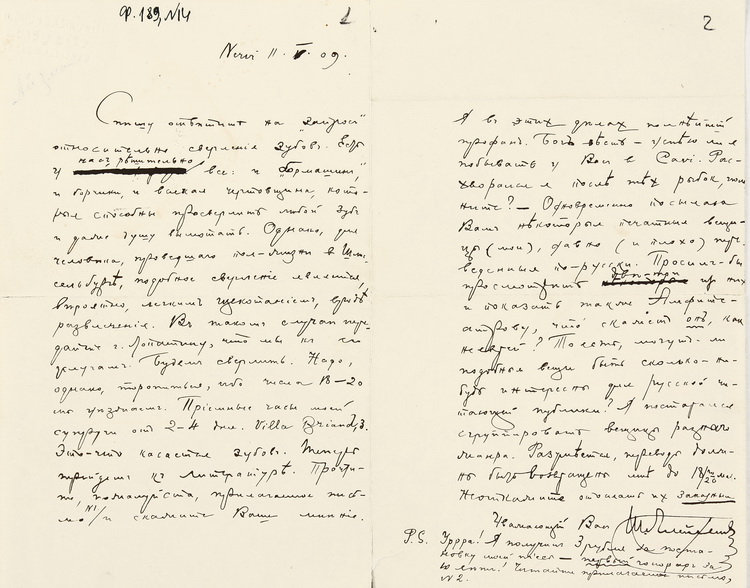 Ф. 189, №14
1
Nervi 11. V. 09.
Спѣшу отвѣтить на „запросъ"
относительно сверленія зубовъ. Есть
насъ рѣшительно
у все: и „бормашины",
и борчики, и всякая чертовщина, кото-
рые способны просверлить любой зубъ
и даже душу вымотать. Однако, для
человѣка, проведшаго пол-жизни въ Шли-
сельбургѣ, подобное сверленіе является,
вѣроятно, легкимъ щекотаніемъ, вродѣ
развлеченія. Въ такомъ случаѣ пере-
дайте г. Лопатину, что мы къ его
услугамъ. Будемъ сверлить. Надо,
однако, торопиться, ибо числа 18–20
мы уѣзжаемъ. Пріемные часы моей
супруги отъ 2–4 дня. Villa Briand, 3.
Это – что касается зубовъ. Теперь
перейдемъ къ литературѣ. Прочти-
те, пожалуйста, прилагаемое пись-
мо №1 и скажите Ваше мнѣніе.
2
Я въ этихъ дѣлахъ полнѣйшій
профанъ. Богъ вѣсть – успѣю ли я
побывать у Васъ въ Cavi. Рас-
хворался послѣ тѣхъ рыбокъ, пом-
ните? – Одновременно посылаю
Вамъ нѣкоторыя печатныя вещи-
цы (мои), давно (и плохо) пере-
веденныя по-русски. Просилъ-бы
двѣ-три
просмотрѣть изъ нихъ
и показать также Амфите-
атрову, что скажетъ онъ, какъ
То есть, могутъ-ли
подобныя вещи быть сколько-ни-
будь интересны для русской чи-
тающей публики? Я постарался
сгруппировать вещицы разнаго
жанра. Разумѣется, переводы долж-
ны быть возвращены мнѣ до 18/20 м.
Не откажите отослать ихъ заказнымъ
Уважающій Васъ
P.S. Уррра! Я получилъ 3 рубля за поста-
новку моей пьесы – первый гонораръ за
Читайте прилагаемое письмо,
№2.